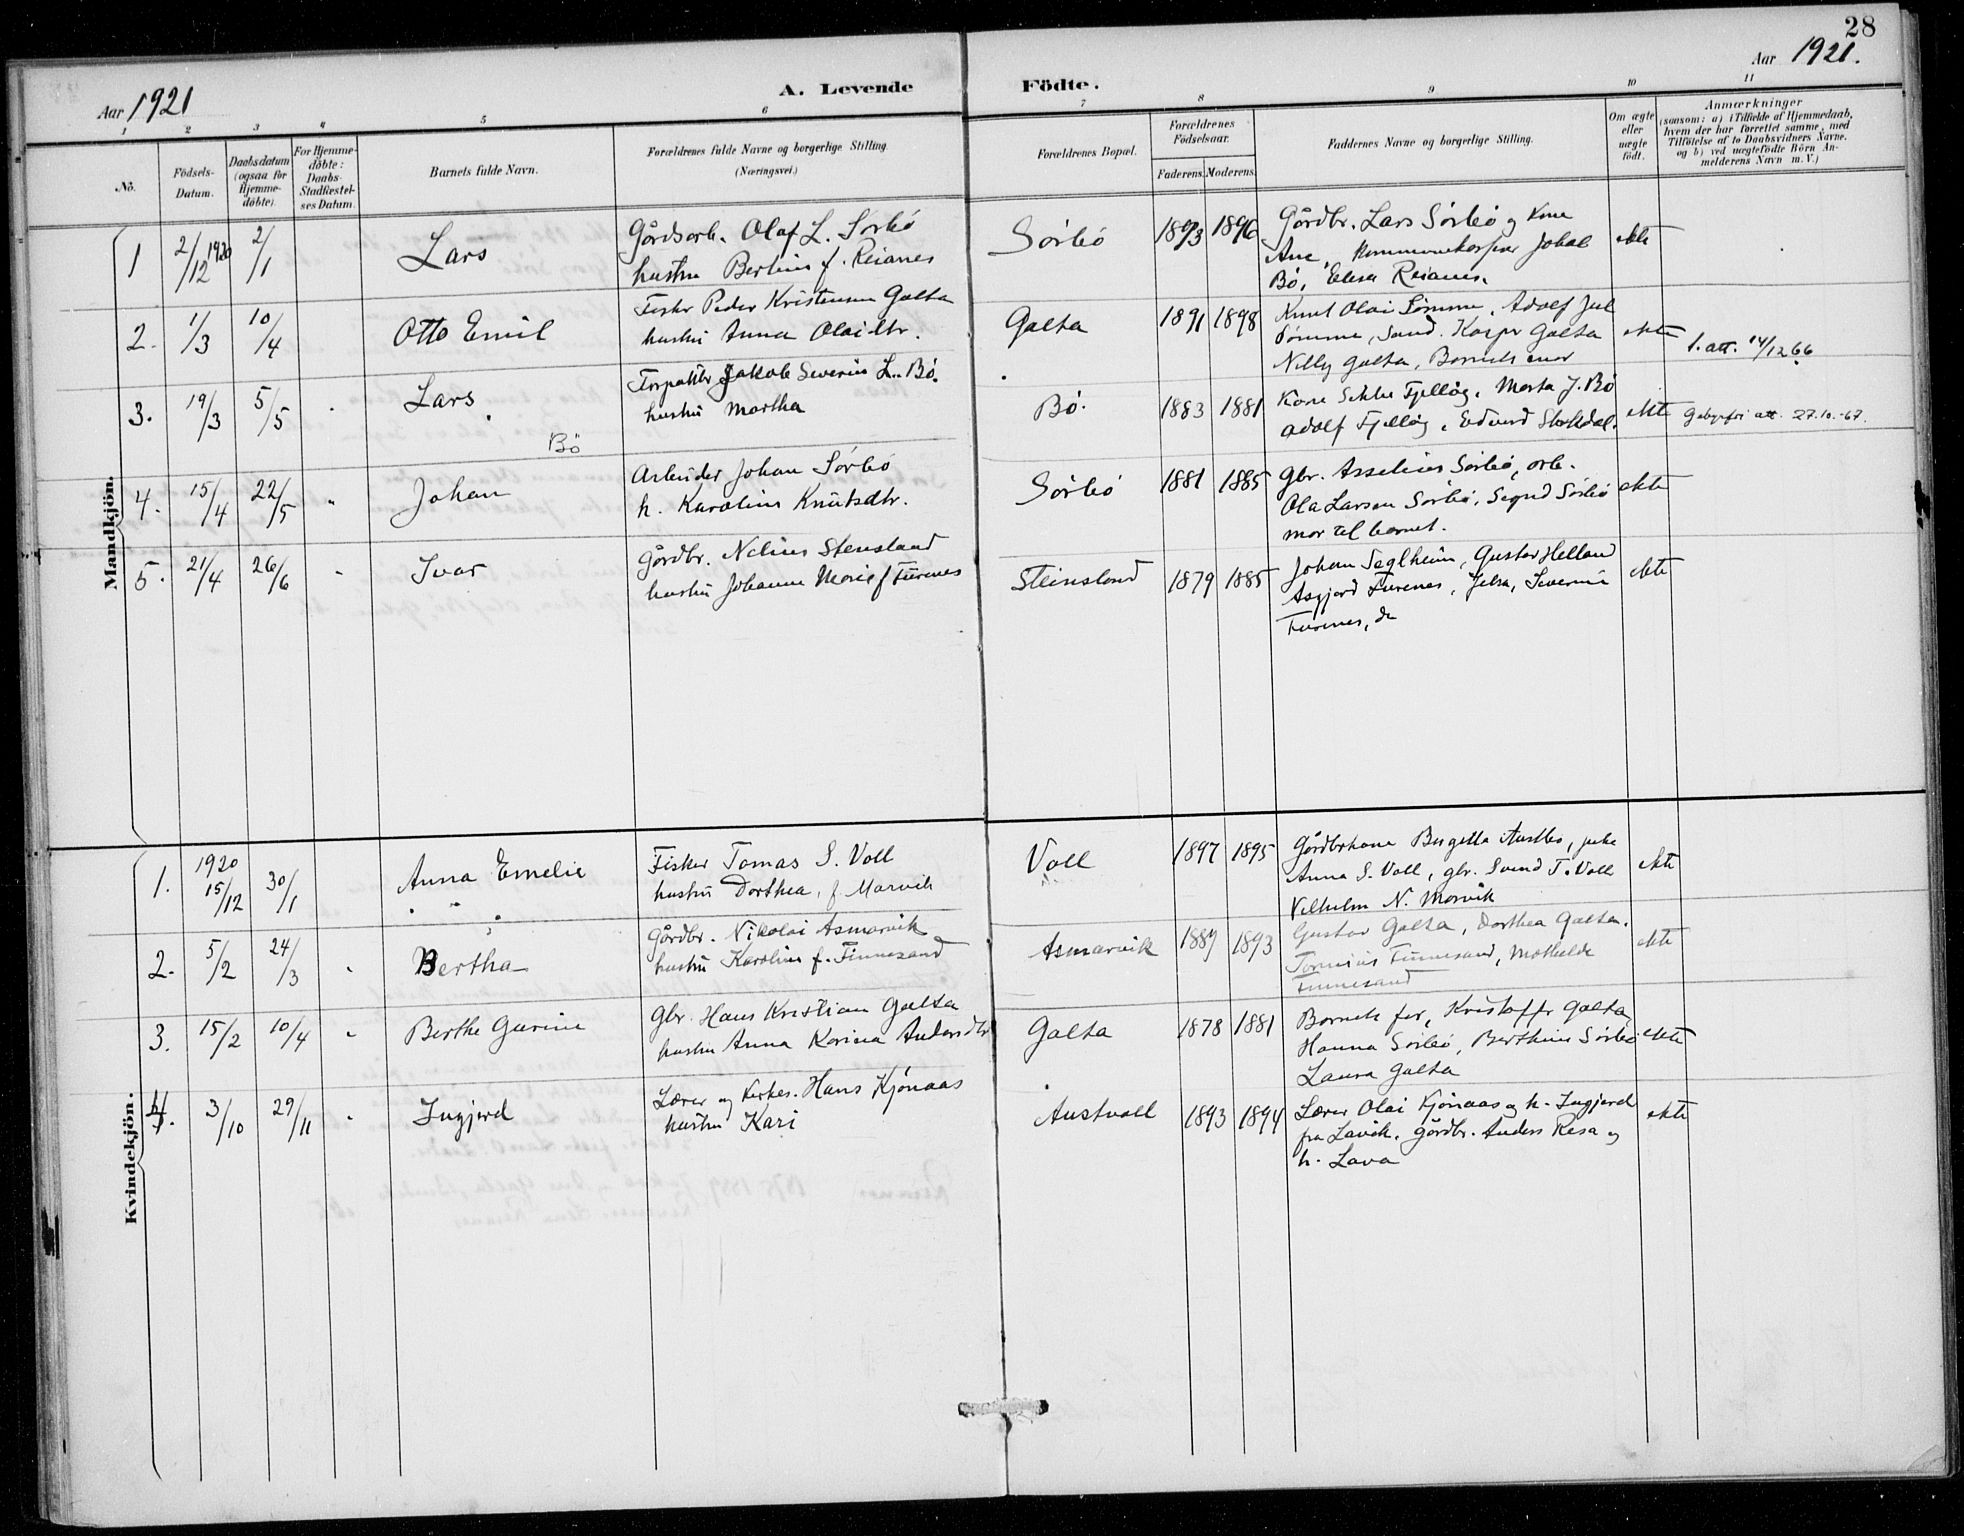 28
Aar 1921
A. Levende Födte.
Aar 1921.
1 2 3 4 5 6 7 8 9 10 11
No.
Födsels-Datum.
Daabsdatum (ogsaa for Hjemme-döbte).
For Hjemme-döbte: Daabs-Stadfæstel-ses Datum.
Barnets fulde Navn.
Forældrenes fulde Navne og borgerlige Stilling.
(Næringsvei.)
Forældrenes Bopæl.
Forældrenes Födselsaar.
Faderens. Moderens.
Faddernes Navne og borgerlige Stilling.
Om ægte eller uægte födt.
Anmærkninger
(saasom: a) i Tilfælde af Hjemmedaab,
hvem der har forrettet samme, med
Tilföielse af to Daabsvidners Navne.
og b) ved uægtefödte Börn An-
melderens Navn m. V.)
Mandkjön.
1 2/12 1920 2/1 Lars
Gårdsarb. Olaf L. Sørbø
hustru Bertine f. Reianes
Sørbø 1893 1896
Gårdbr. Lars Sørbø og kone
Ane, kommunekasserer Johal
Bø, Elesa Reianes.
ekte
2. 1/3 10/4 Otto Emil
Fisker Peder Kristensen Galta
hustru Anna Olaidtr.
Galta 1891 1898
Knut Olai Sømme, Adolf Jul
Sømme, Sand. Kaspr Galta
Nelly Galta, Barnets mor
ekte
1. att. 14/12 66
3. 19/3 5/5 Lars
Bö
Forpakter Jakob Severin L. Bø.
hustru Martha
Bø. 1883 1881
Kone Sekke Fjelløg, Marta J. Bø
Adolf Fjelløg, Edvard Stokdal.
ekte
Gebyrfri att 27.10.-67.
4. 15/4 22/5 " Johan
Arbeider Johan Sørbø
h. Karoline Knutsdtr.
Sørbø 1881 1885
Gbr. Asselius Sørbø, arb.
Ola Larsen Sørbø, Signd Sørbø
mor til barnet.
ekte
5. 21/4 26/6 " Ivar
Gårdbr. Nelius Stensland
hustru Johanne Marie f Furenes
Steinsland 1879 1885
Johan Seglheim, Gustav Helland
Asgjerd Furenes, Jelsa, Severine
Furenes, do
ekte
Kvindekjön.
1. 1920 15/12 30/1 Anna Emelie
Fisker Tomas S. Voll
hustru Dorthea, f Marvik
Voll 1897 1895
Gårdbrkone Bergitta Austbø, pike
Anna S. Voll, gbr. Svend T. Voll
Vilhelm N. Marvik
ekte
2. 5/2 24/3 " Bertha
Gårdbr. Nikolai Asmarvik
hustru Karoline f. Finnesand
Asmarvik 1889 1893
Gustav Galta, Dorthea Galta.
Tomines Finnesand, Mathilde
Finnesand
ekte
3. 15/2 10/4 " Berthe Gurine
Gbr. Hans Kristian Galta
hustru Anna Karina Andersdtr
Galta 1878 1881
Barnets far, Kristoffr Galta
Hanna Sørbø, Berthine Sørbø
Laura Galta
ekte
4. 3/10 29/11 " Ingjerd
Lærer og kirkes. Hans Kjønaas
hustru Kari
Austvoll 1893 1894
Lærer Olai Kjønaas og h. Ingjerd
fra Lavik. gårdbr. Anders Resa og
h. Lava
ekte